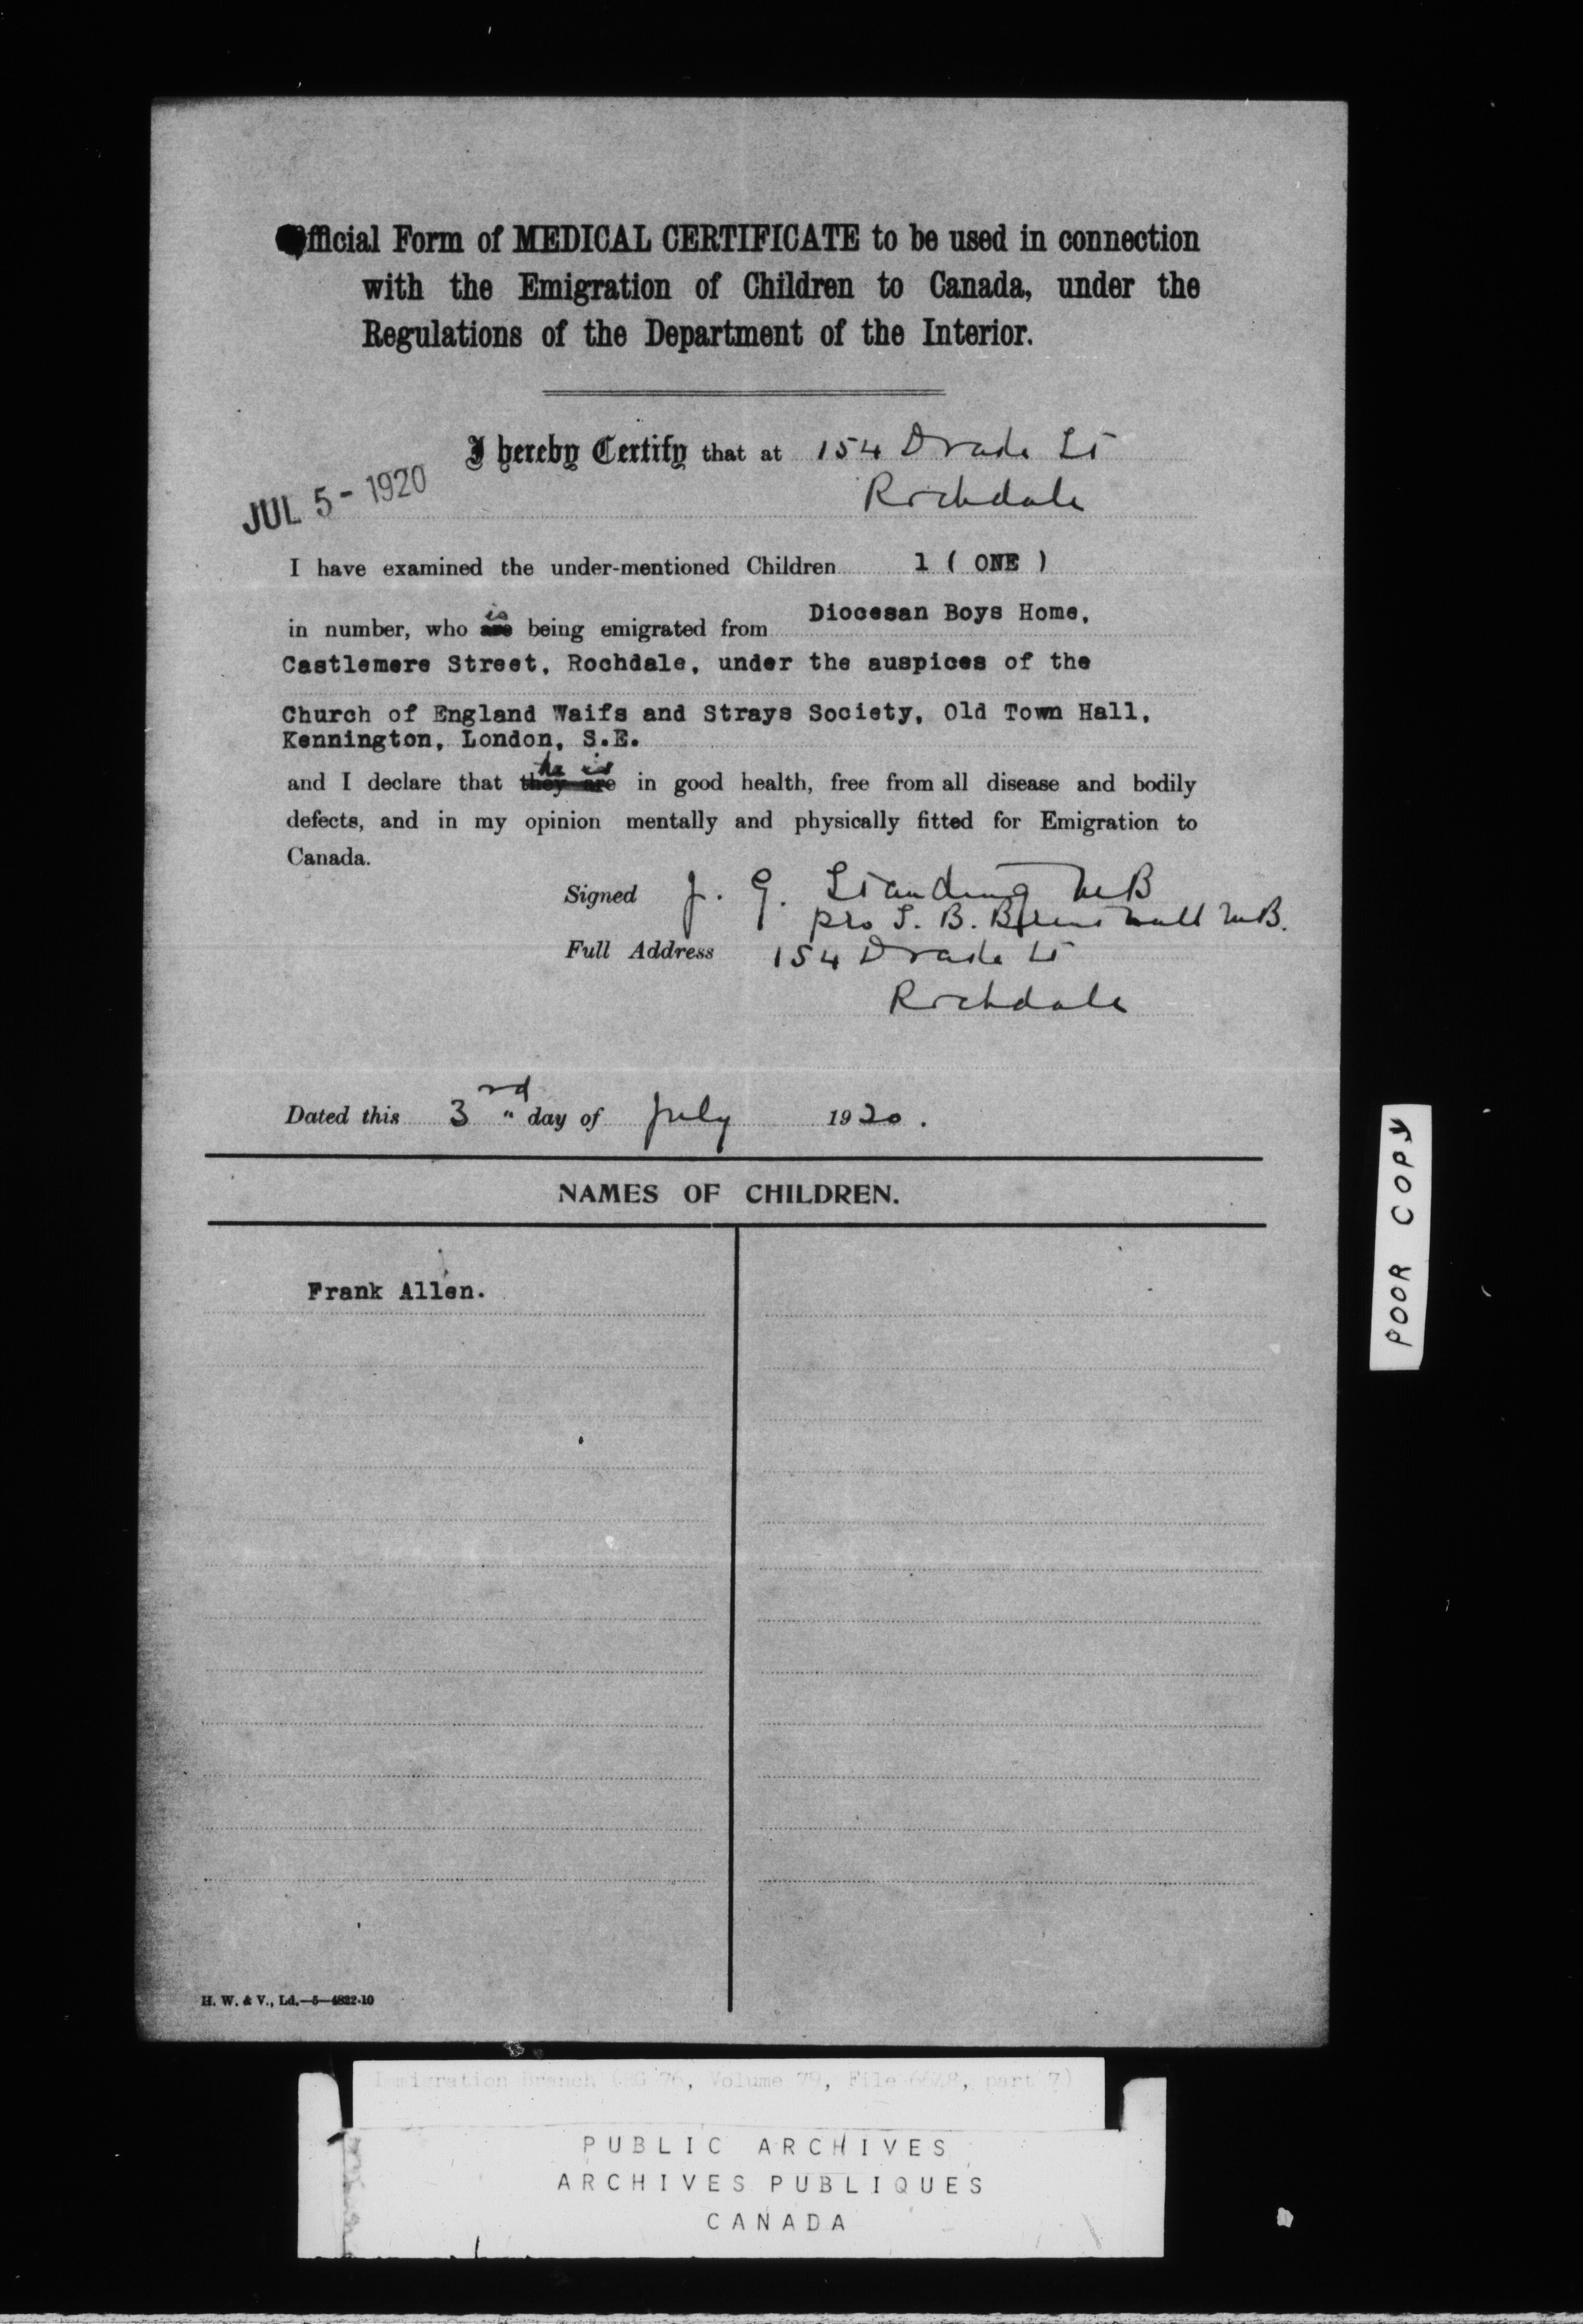 Official Form of MEDICAL CERTIFICATE to be used in connection
with the Emigration of Children to Canada, under the
Regulations of the Department of the Interior.
I hereby Certify that at 154 Drake St
Rochdale
JUL 5 - 1920
I have examined the under-mentioned Children 1 ( ONE )
in number, who are is being emigrated from Diocesan Boys Home,
Castlemere Street, Rochdale, under the auspices of the
Church of England Waifs and Strays Society, Old Town Hall,
Kennington, London, S.E.
and I declare that they are he is in good health, free from all disease and bodily
defects, and in my opinion mentally and physically fitted for Emigration to
Canada.
Signed J. G. Standing MB
pro S. B. MB.
Full Address 154 Drake St
Rochdale
Dated this 3rd " day of July 1920.
NAMES OF CHILDREN.
Frank Allen.
H. W. & V., Ld.—5—4822-10
POOR COPY
Immigration Branch (RG 76, Volume 79, File 6648, part 7)
PUBLIC ARCHIVES
ARCHIVES PUBLIQUES
CANADA